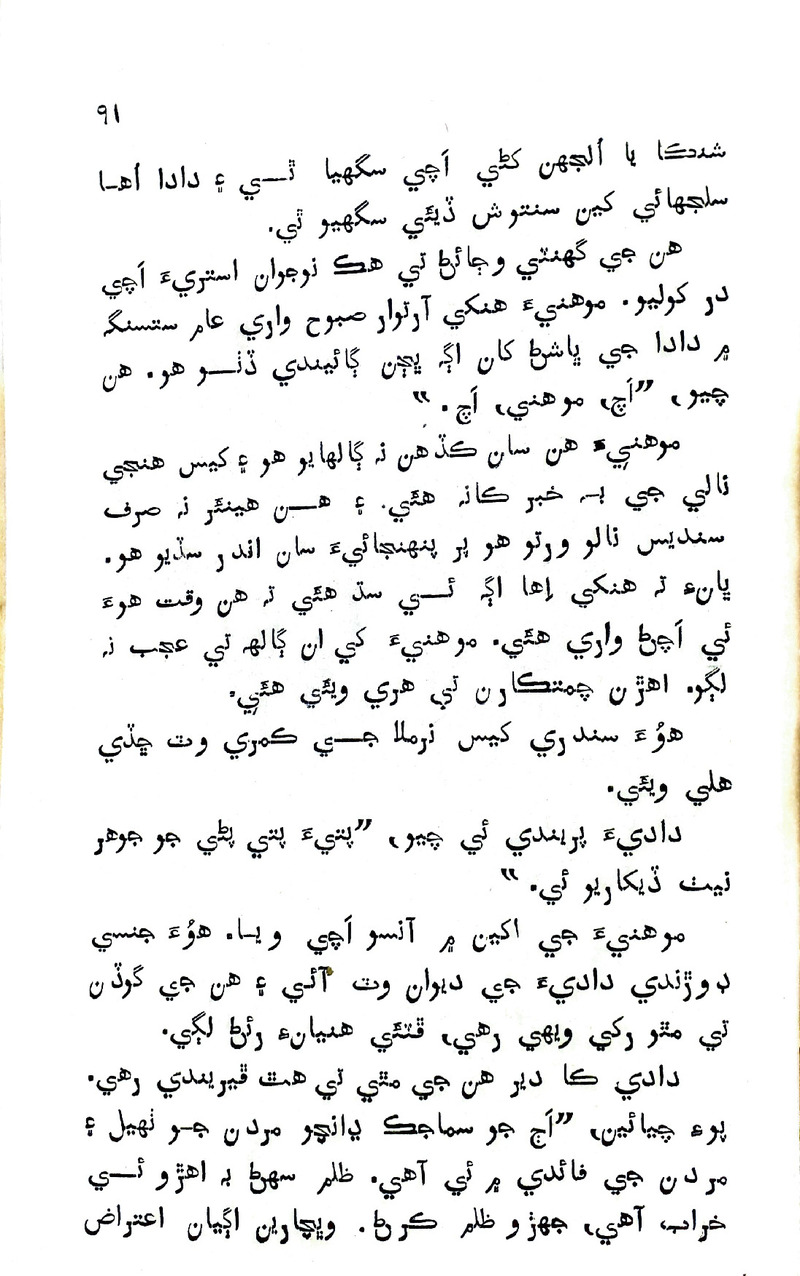 ۹۱
شندڪا يا اُلجهن کڻي اَچي سگهيا ٿي ۽ دادا اُهـا
سلجهائي کين سنتوش ڏيئي سگهيو ٿي.
هن جي گهنٽي وڄائڻ تي هڪ نوجوان استريءَ اَچي
در کوليو. موهنيءَ هنکي آرتوار صبوح واري عام ستسنگ
۾ دادا جي ڀاشڻ کان اڳ ڀڄن ڳائيندي ڏٺـو هو. هن
چيو، ”اَچ، موهني، اَچ. “
موهنيءَ هن سان ڪڏهن نہ ڳالهايو هو ۽ کيس هنجي
نالي جي بہ خبر ڪانہ هئي. ۽ هـن هينئر نہ صرف
سنديس نالو ورتو هو پر پنهنجائيءَ سان اندر سڏيو هو.
ڀانءِ تہ هنکي اِها اڳ ئـي سڌ هئي تہ هن وقت هوءَ
ئي اَچڻ واري هئي. موهنيءَ کي ان ڳالهہ تي عجب نہ
لڳو. اهڙن چمتڪارن تي هري ويئي هئي.
هوُءَ سندري کيس نرملا جـي ڪمري وٽ ڇڏي
هلي ويئي.
داديءَ پريندي ئي چيو، ”پتيءَ پتي پڻي جو جوهر
نيٺ ڏيکاريو ئي. “
موهنيءَ جي اکين ۾ آنسو اَچي ويـا. هوُءَ جنسي
ڊوڙندي داديءَ جي ديوان وٽ آئي ۽ هن جي گوڏن
تي مٿو رکي ويهي رهي، ڦٽئي هنيانءِ رئڻ لڳي.
دادي ڪا دير هن جي مٿي تي هٿ ڦيريندي رهي.
پوءِ چيائين، ”اَڄ جو سماجڪ ڍانچو مردن جـو ٺهيل ۽
مردن جي فائدي ۾ ئي آهي. ظلم سهڻ بہ اهڙو ئـي
خراب آهي، جهڙو ظلم ڪرڻ. ويچارين اڳيان اعتراض